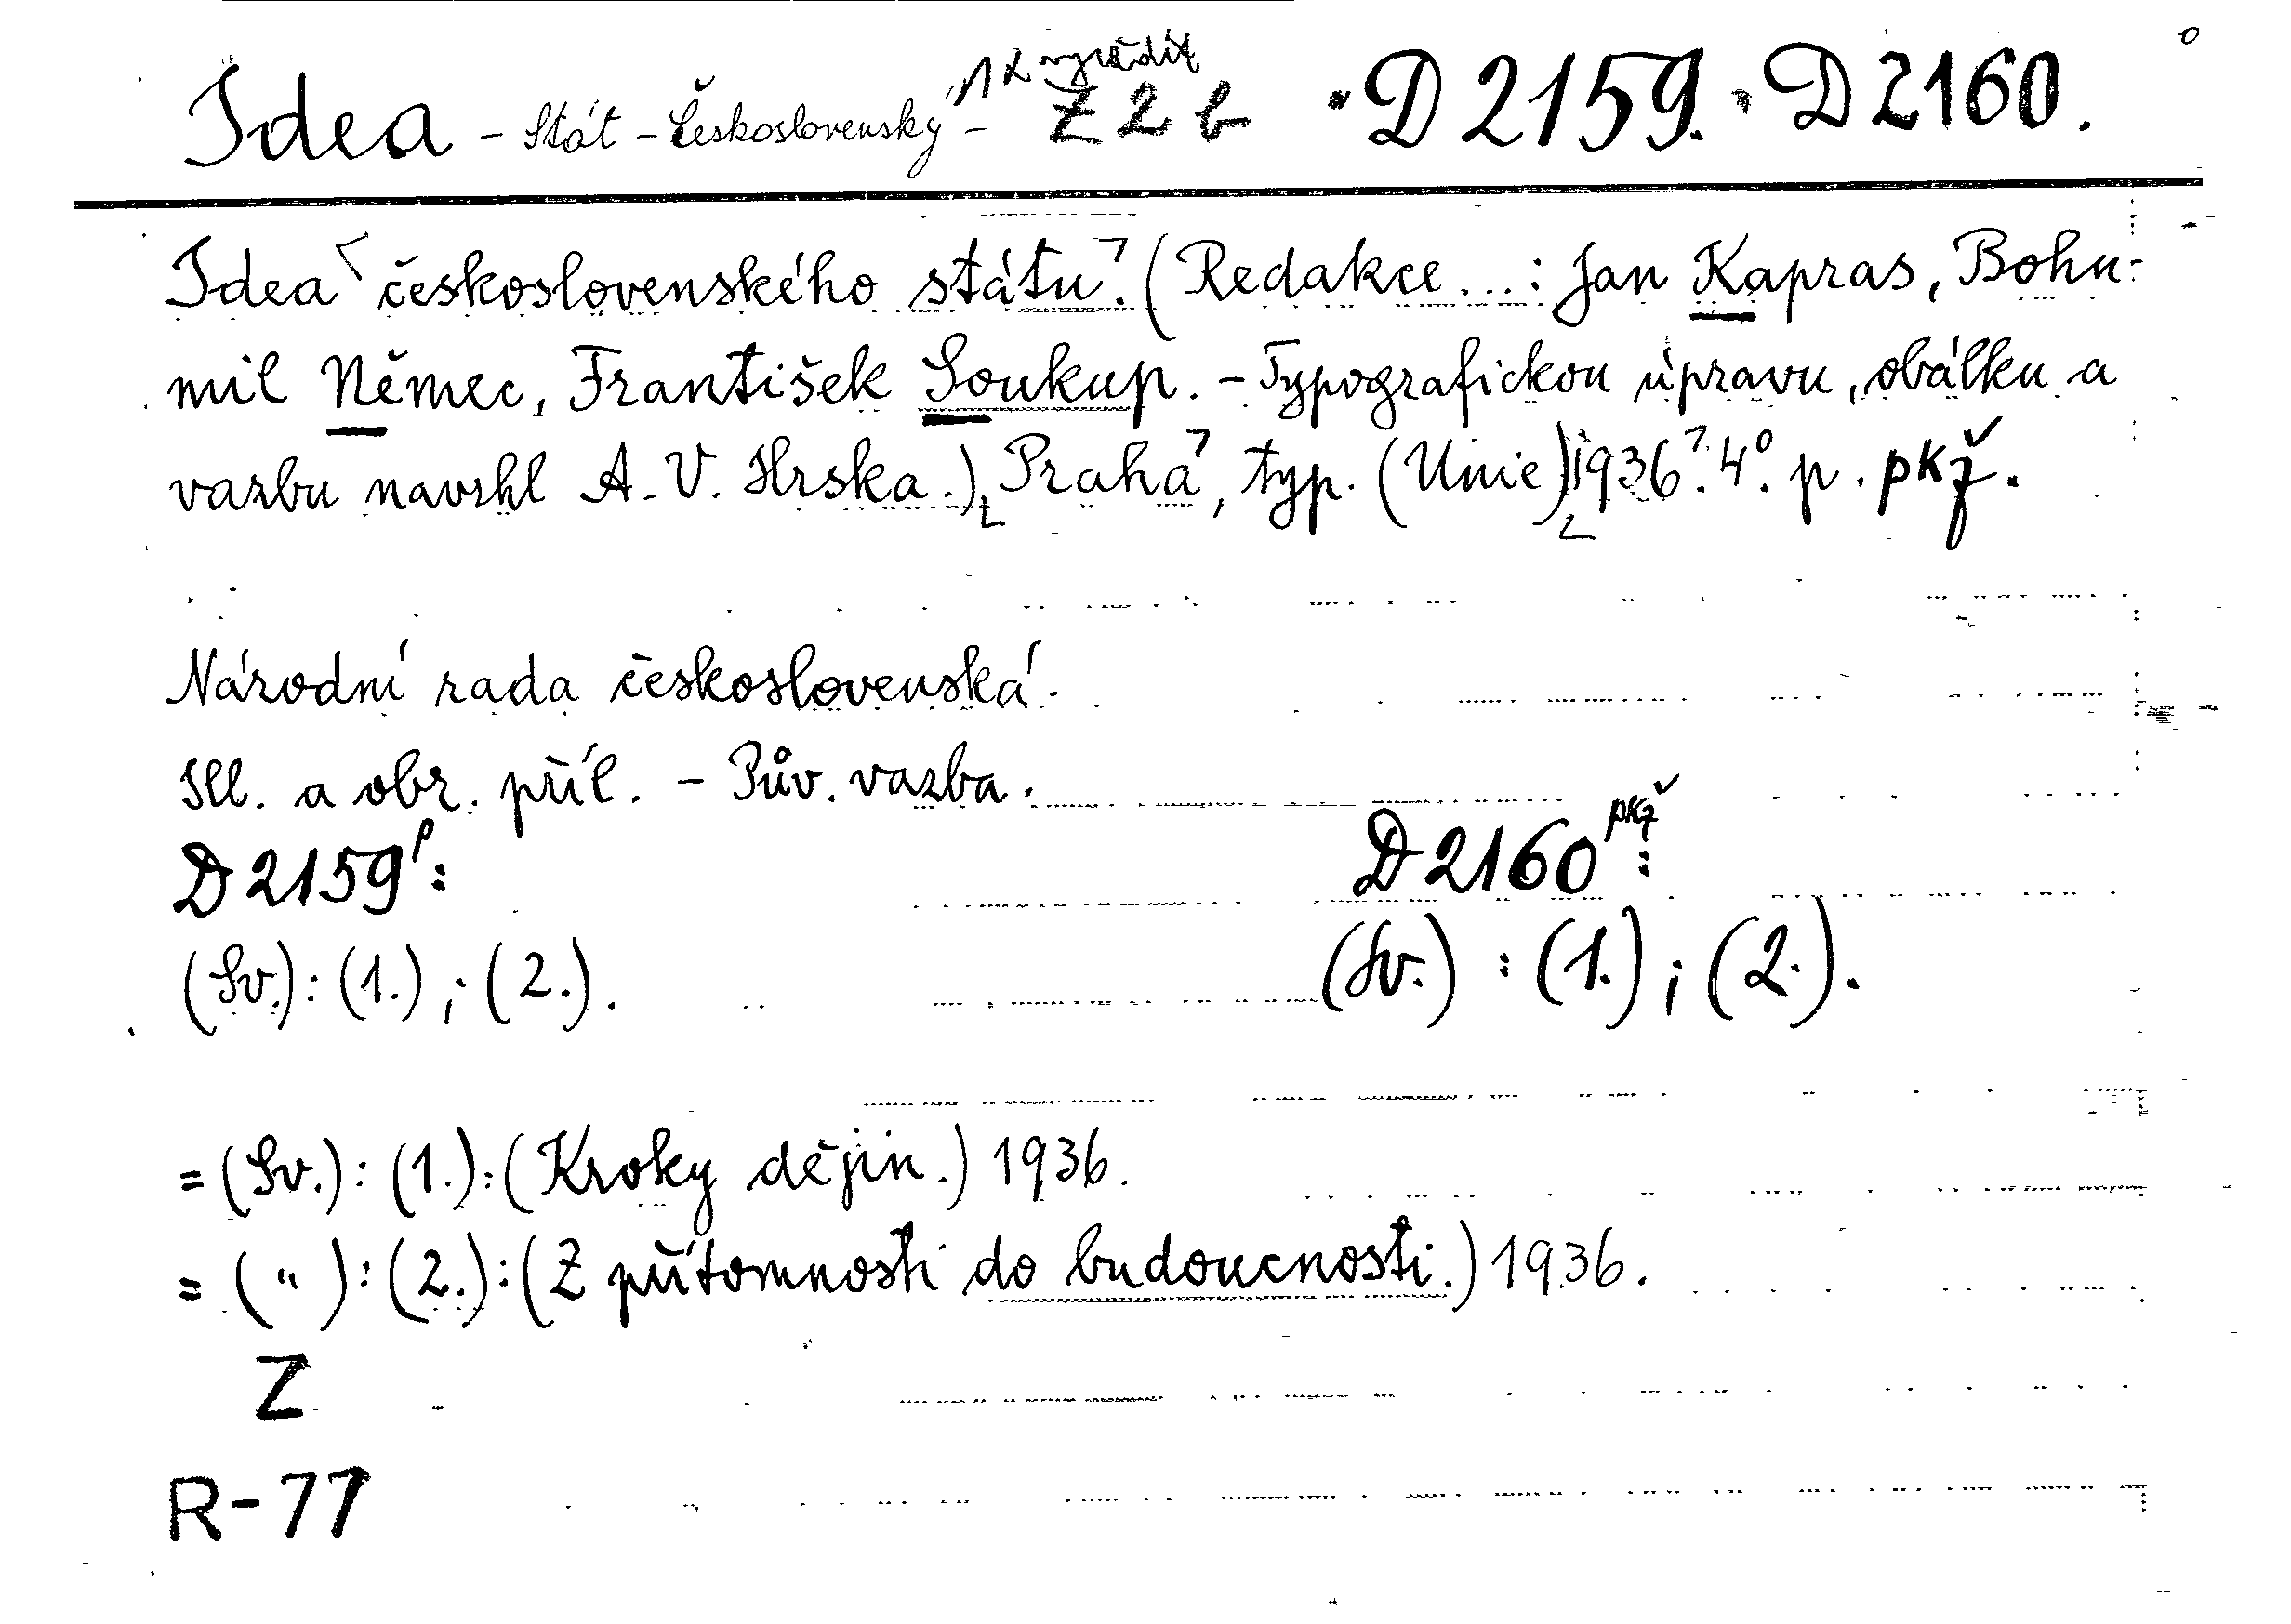 Idea - Stát - Československý - 1x vyřadit Z 2 b · D 2159. · D 2160.
Idea československého státu. (Redakce...: Jan Kapras, Bohu-
mil Němec, František Soukup. - Typografickou úpravu, obálku a
vazbu navrhl A. V. Hrska.) Praha, typ. (Unie) 1936. 4°. p. pkž.
Národní rada československá.
Ill. a obr. příl. - Pův. vazba.
D 2159 p: D 2160 pkž:
(Sv.): (1.); (2.). (Sv.): (1.); (2.).
= (Sv.): (1.): (Kroky dějin.) 1936.
= ( " ): (2.): (Z přítomnosti do budoucnosti.) 1936.
Z
R-77